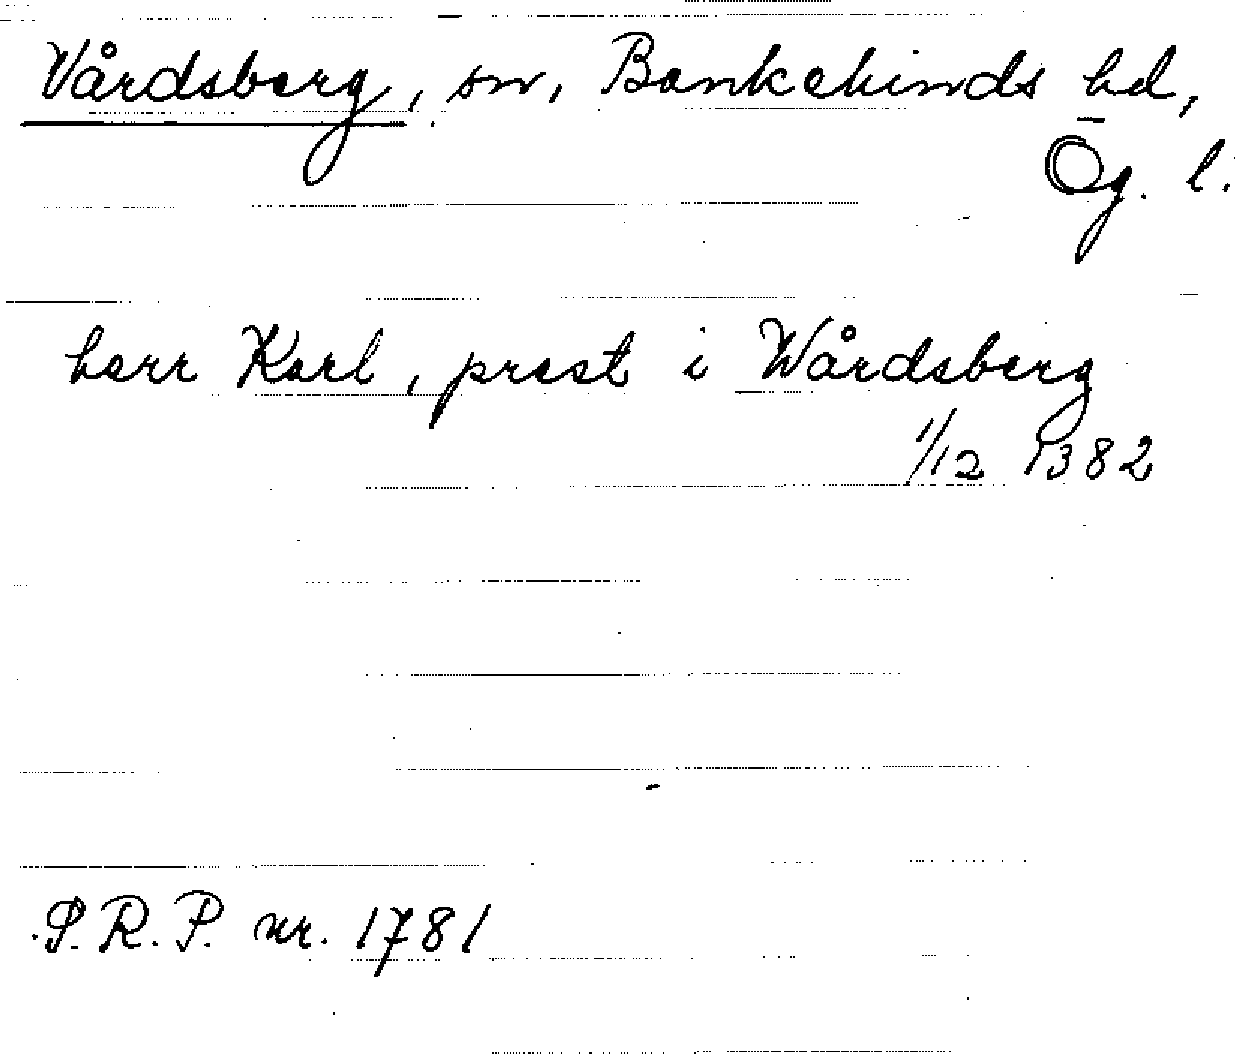 Vårdsberg, sn, Bankekinds hd,
Ög. l.
herr Karl, prest i Wårdsberg
1/12 1382
S.R.P. nr. 1781